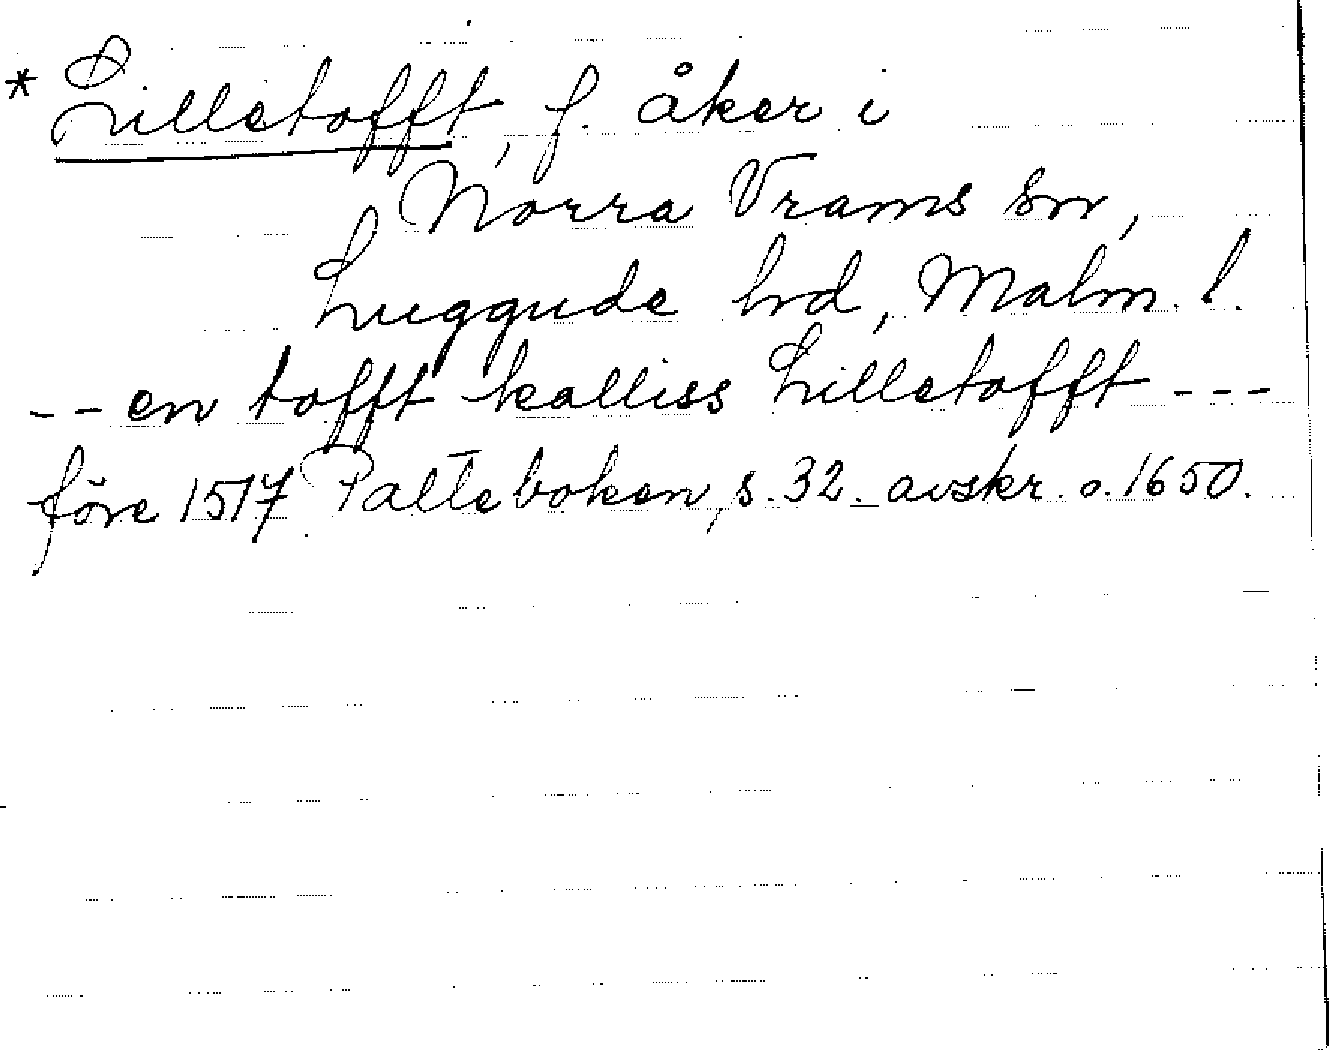 * Lilletofft, f. åker i
Norra Vrams sn,
Luggude hd, Malm. l.
-- en tofft kalliss Lilletofft ---
före 1517 Palteboken, s. 32. avskr. o. 1650.